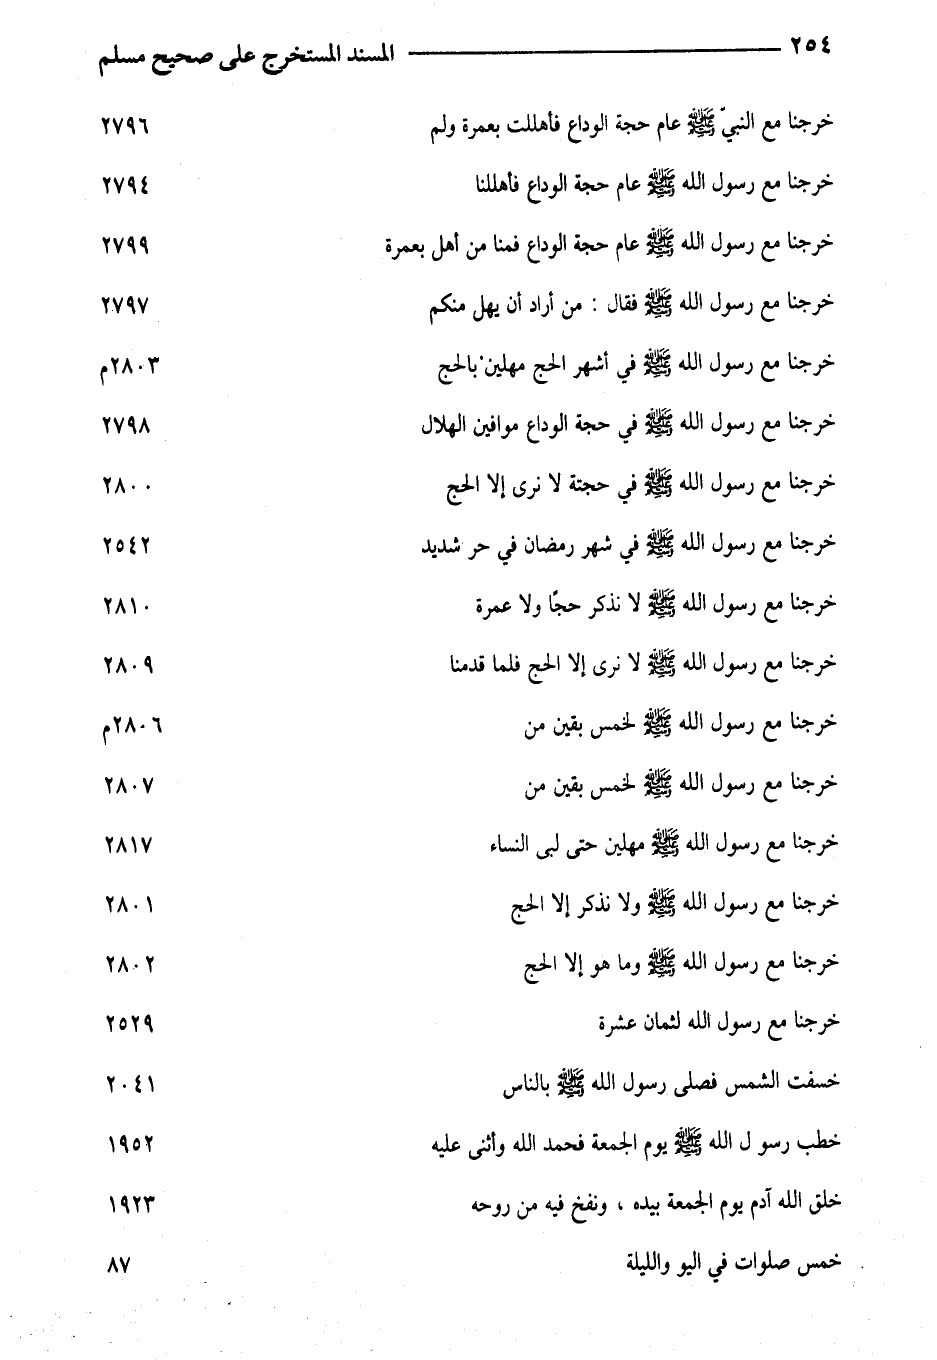 ٢٥٤ المسند المستخرج على صحيح مسلم
خرجنا مع النبيّ ﷺ عام حجة الوداع فأهللت بعمرة ولم ٢٧٩٦
خرجنا مع رسول الله ﷺ عام حجة الوداع فأهللنا ٢٧٩٤
خرجنا مع رسول الله ﷺ عام حجة الوداع فمنا من أهل بعمرة ٢٧٩٩
خرجنا مع رسول الله ﷺ فقال : من أراد أن يهل منكم ٢٧٩٧
خرجنا مع رسول الله ﷺ في أشهر الحج مهلين بالحج ٢٨٠٣م
خرجنا مع رسول الله ﷺ في حجة الوداع موافين الهلال ٢٧٩٨
خرجنا مع رسول الله ﷺ في حجتة لا نرى إلا الحج ٢٨٠٠
خرجنا مع رسول الله ﷺ في شهر رمضان في حر شديد ٢٥٤٢
خرجنا مع رسول الله ﷺ لا نذكر حجًا ولا عمرة ٢٨١٠
خرجنا مع رسول الله ﷺ لا نرى إلا الحج فلما قدمنا ٢٨٠٩
خرجنا مع رسول الله ﷺ لخمس بقين من ٢٨٠٦م
خرجنا مع رسول الله ﷺ لخمس بقين من ٢٨٠٧
خرجنا مع رسول الله ﷺ مهلين حتى لبى النساء ٢٨١٧
خرجنا مع رسول الله ﷺ ولا نذكر إلا الحج ٢٨٠١
خرجنا مع رسول الله ﷺ وما هو إلا الحج ٢٨٠٢
خرجنا مع رسول الله لثمان عشرة ٢٥٢٩
خسفت الشمس فصلى رسول الله ﷺ بالناس ٢٠٤١
خطب رسو ل الله ﷺ يوم الجمعة فحمد الله وأثنى عليه ١٩٥٢
خلق الله آدم يوم الجمعة بيده ، ونفخ فيه من روحه ١٩٢٣
خمس صلوات في اليو والليلة ٨٧